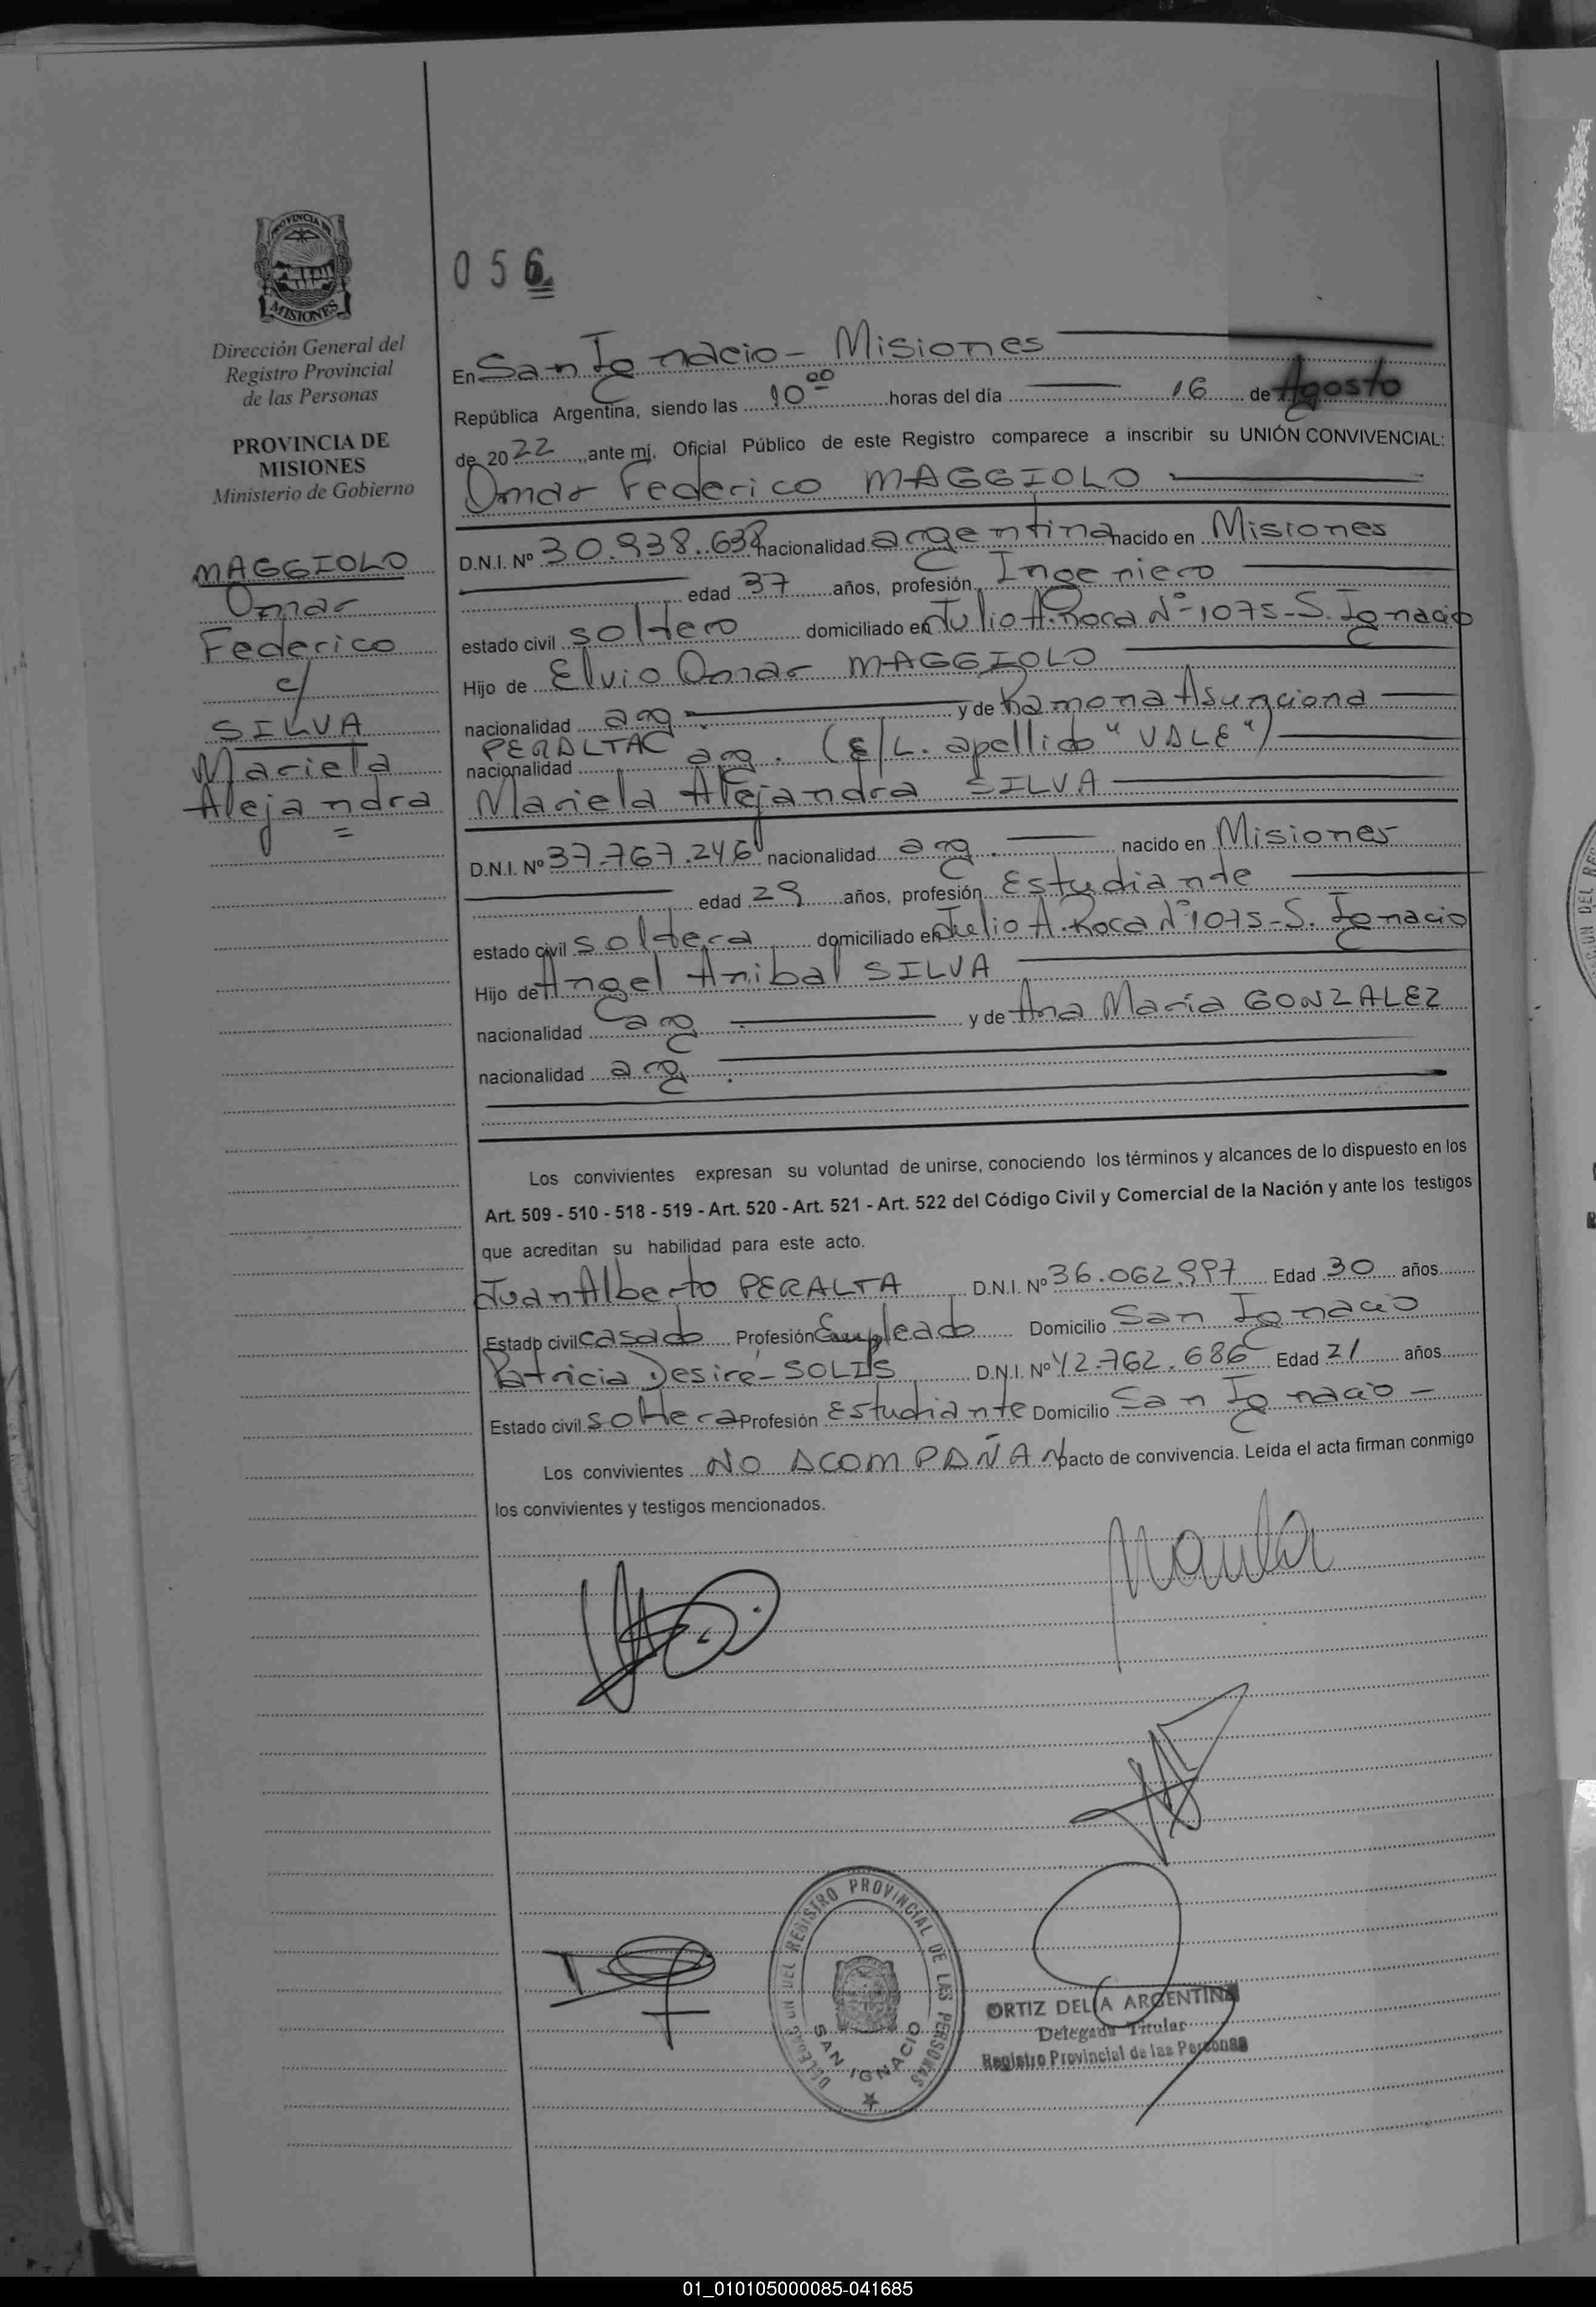 PROVINCIA DE
MISIONES
Dirección General del
Registro Provincial
de las Personas
PROVINCIA DE
MISIONES
Ministerio de Gobierno
MAGGIOLO
Omar
Federico
c/
SILVA
Mariela
Alejandra
=
056
En San Ignacio - Misiones
República Argentina, siendo las 10⁰⁰ horas del día 16 de Agosto
de 2022, ante mí, Oficial Público de este Registro comparece a inscribir su UNIÓN CONVIVENCIAL:
Omar Federico MAGGIOLO
D.N.I. Nº 30.938.638 nacionalidad argentina nacido en Misiones
edad 37 años, profesión Ingeniero
estado civil soltero domiciliado en Julio A. Roca Nº 1075 - S. Ignacio
Hijo de Elvio Omar MAGGIOLO
nacionalidad arg y de Ramona Asunciona
PERALTAC
nacionalidad arg. (E/L. apellido "VALE")
Mariela Alejandra SILVA
D.N.I. Nº 37.767.246 nacionalidad arg. nacido en Misiones
edad 29 años, profesión Estudiante
estado civil soltera domiciliado en Julio A. Roca Nº 1075 - S. Ignacio
Hijo de Angel Anibal SILVA
nacionalidad arg. y de Ana María GONZALEZ
nacionalidad arg.
Los convivientes expresan su voluntad de unirse, conociendo los términos y alcances de lo dispuesto en los
Art. 509 - 510 - 518 - 519 - Art. 520 - Art. 521 - Art. 522 del Código Civil y Comercial de la Nación y ante los testigos
que acreditan su habilidad para este acto.
Juan Alberto PERALTA D.N.I. Nº 36.062.997 Edad 30 años
Estado civil casado Profesión Empleado Domicilio San Ignacio
Patricia Desiré - SOLIS D.N.I. Nº 42.762.686 Edad 21 años
Estado civil soltera Profesión Estudiante Domicilio San Ignacio -
Los convivientes NO ACOMPAÑAN pacto de convivencia. Leída el acta firman conmigo
los convivientes y testigos mencionados.
DELEGACION DEL REGISTRO PROVINCIAL DE LAS PERSONAS
SAN IGNACIO
ORTIZ DELIA ARGENTINA
Delegada Titular
Registro Provincial de las Personas
01_010105000085-041685